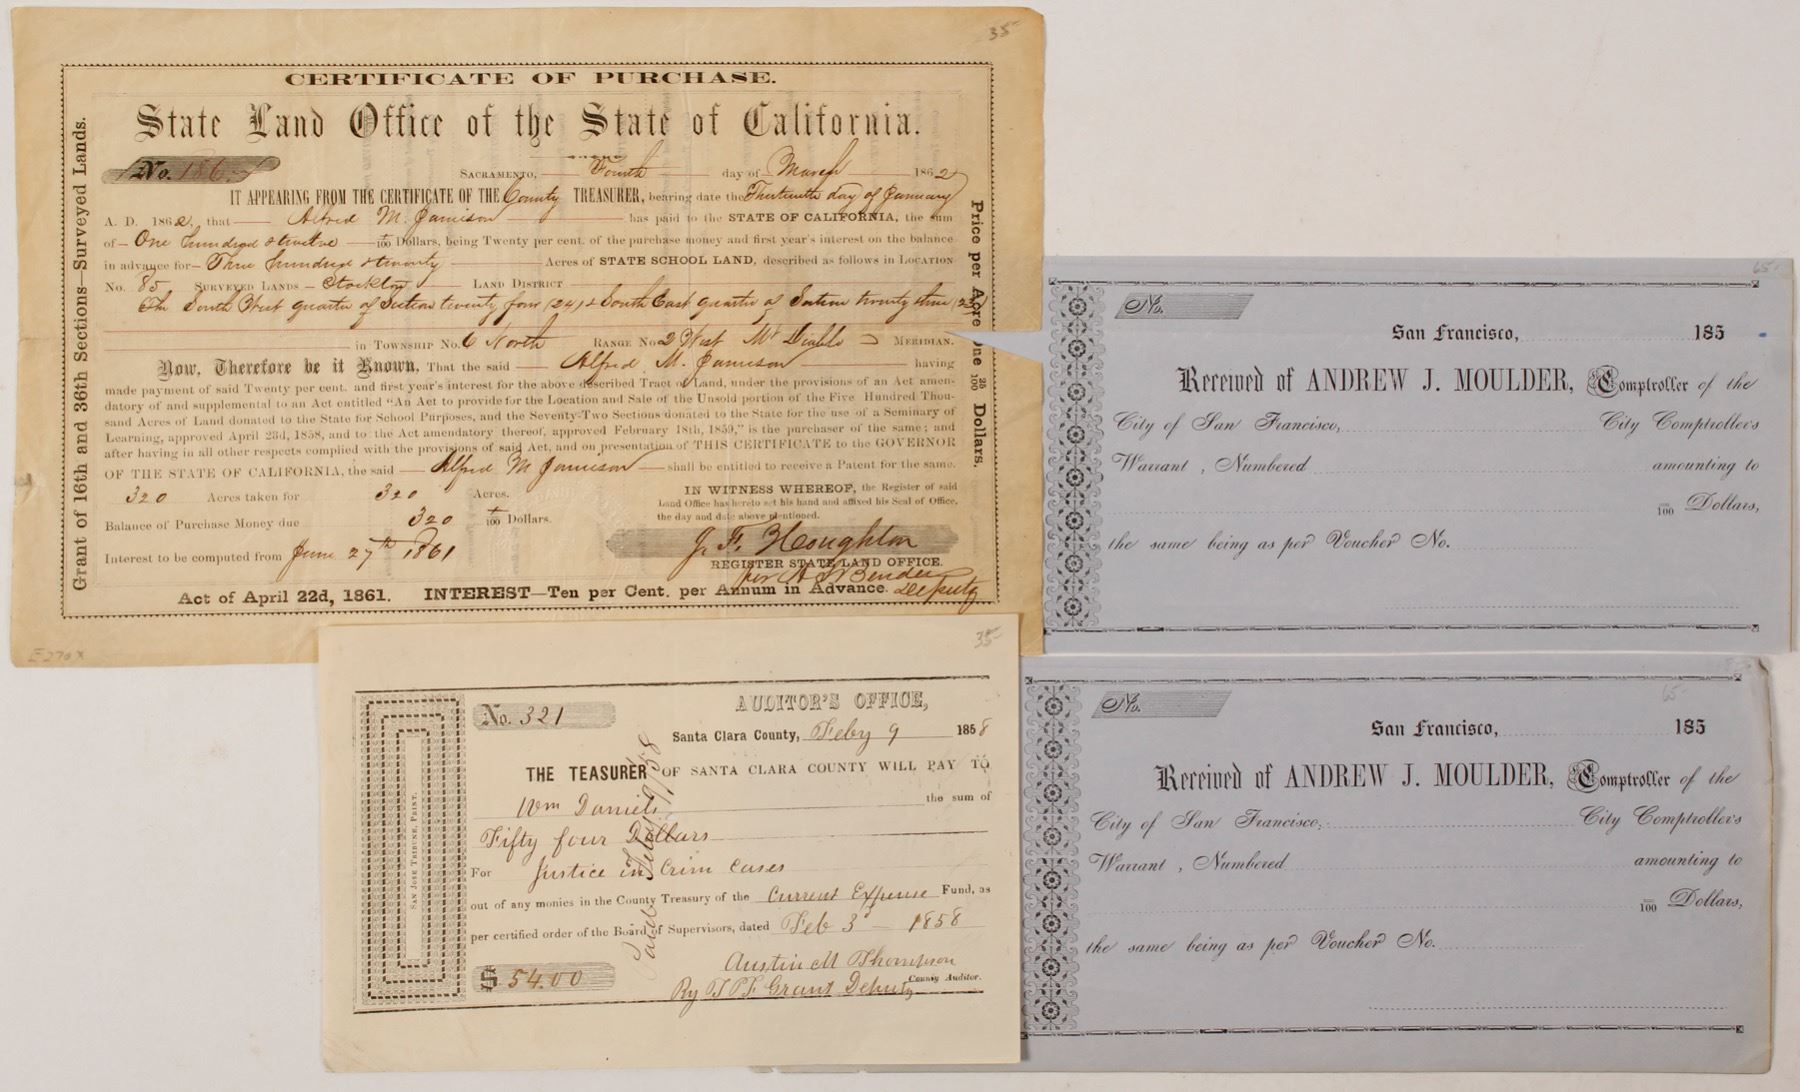 35-
CERTIFICATE OF PURCHASE.
State Land Office of the State of California.
No. 186.
SACRAMENTO, Fourth day of March 1862
IT APPEARING FROM THE CERTIFICATE OF THE County TREASURER, bearing date the Thirteenth day of January
A. D. 1862, that Alfred M. Jamison has paid to the STATE OF CALIFORNIA, the sum
of One hundred & twelve /100 Dollars, being Twenty per cent. of the purchase money and first year's interest on the balance
in advance for Three hundred & twenty Acres of STATE SCHOOL LAND, described as follows in LOCATION
No. 85 SURVEYED LANDS Stockton LAND DISTRICT
The South West quarter of Section twenty four (24) & South East quarter of Section twenty three (23)
in TOWNSHIP No. 6 North RANGE No 2 West Mt Diablo MERIDIAN.
Now, Therefore be it Known, That the said Alfred M. Jamison having
made payment of said Twenty per cent. and first year's interest for the above described Tract of Land, under the provisions of an Act amen-
datory of and supplemental to an Act entitled "An Act to provide for the Location and Sale of the Unsold portion of the Five Hundred Thou-
sand Acres of Land donated to the State for School Purposes, and the Seventy-Two Sections donated to the State for the use of a Seminary of
Learning, approved April 23d, 1858, and to the Act amendatory thereof, approved February 18th, 1859," is the purchaser of the same; and
after having in all other respects complied with the provisions of said Act, and on presentation of THIS CERTIFICATE to the GOVERNOR
OF THE STATE OF CALIFORNIA, the said Alfred M Jamison shall be entitled to receive a Patent for the same.
320 Acres taken for 320 Acres.
Balance of Purchase Money due 320 /100 Dollars.
Interest to be computed from June 27th 1861
IN WITNESS WHEREOF, the Register of said
Land Office has hereto set his hand and affixed his Seal of Office,
the day and date above mentioned.
J. F. Houghton
REGISTER STATE LAND OFFICE.
per A S Bender
Deputy
Act of April 22d, 1861. INTEREST—Ten per Cent. per Annum in Advance.
Grant of 16th and 36th Sections—Surveyed Lands.
Price per Acre One 25/100 Dollars.
E270x
65-
No.
San Francisco, 185
Received of ANDREW J. MOULDER, Comptroller of the
City of San Francisco, City Comptroller's
Warrant, Numbered amounting to
/100 Dollars,
the same being as per Voucher No.
35-
No. 321
AUDITOR'S OFFICE,
Santa Clara County, Feby 9 1858
THE TEASURER OF SANTA CLARA COUNTY WILL PAY TO
Wm Daniels the sum of
Fifty four Dollars
For Justice in Crim Cases
out of any monies in the County Treasury of the Current Expense Fund, as
per certified order of the Board of Supervisors, dated Feb 3d 1858
$ 54.00
Austin M Thompson
County Auditor.
By T P F Grant Deputy
Paid Feby 9/58
SAN JOSE TRIBUNE, PRINT.
65-
No.
San Francisco, 185
Received of ANDREW J. MOULDER, Comptroller of the
City of San Francisco, City Comptroller's
Warrant, Numbered amounting to
/100 Dollars,
the same being as per Voucher No.